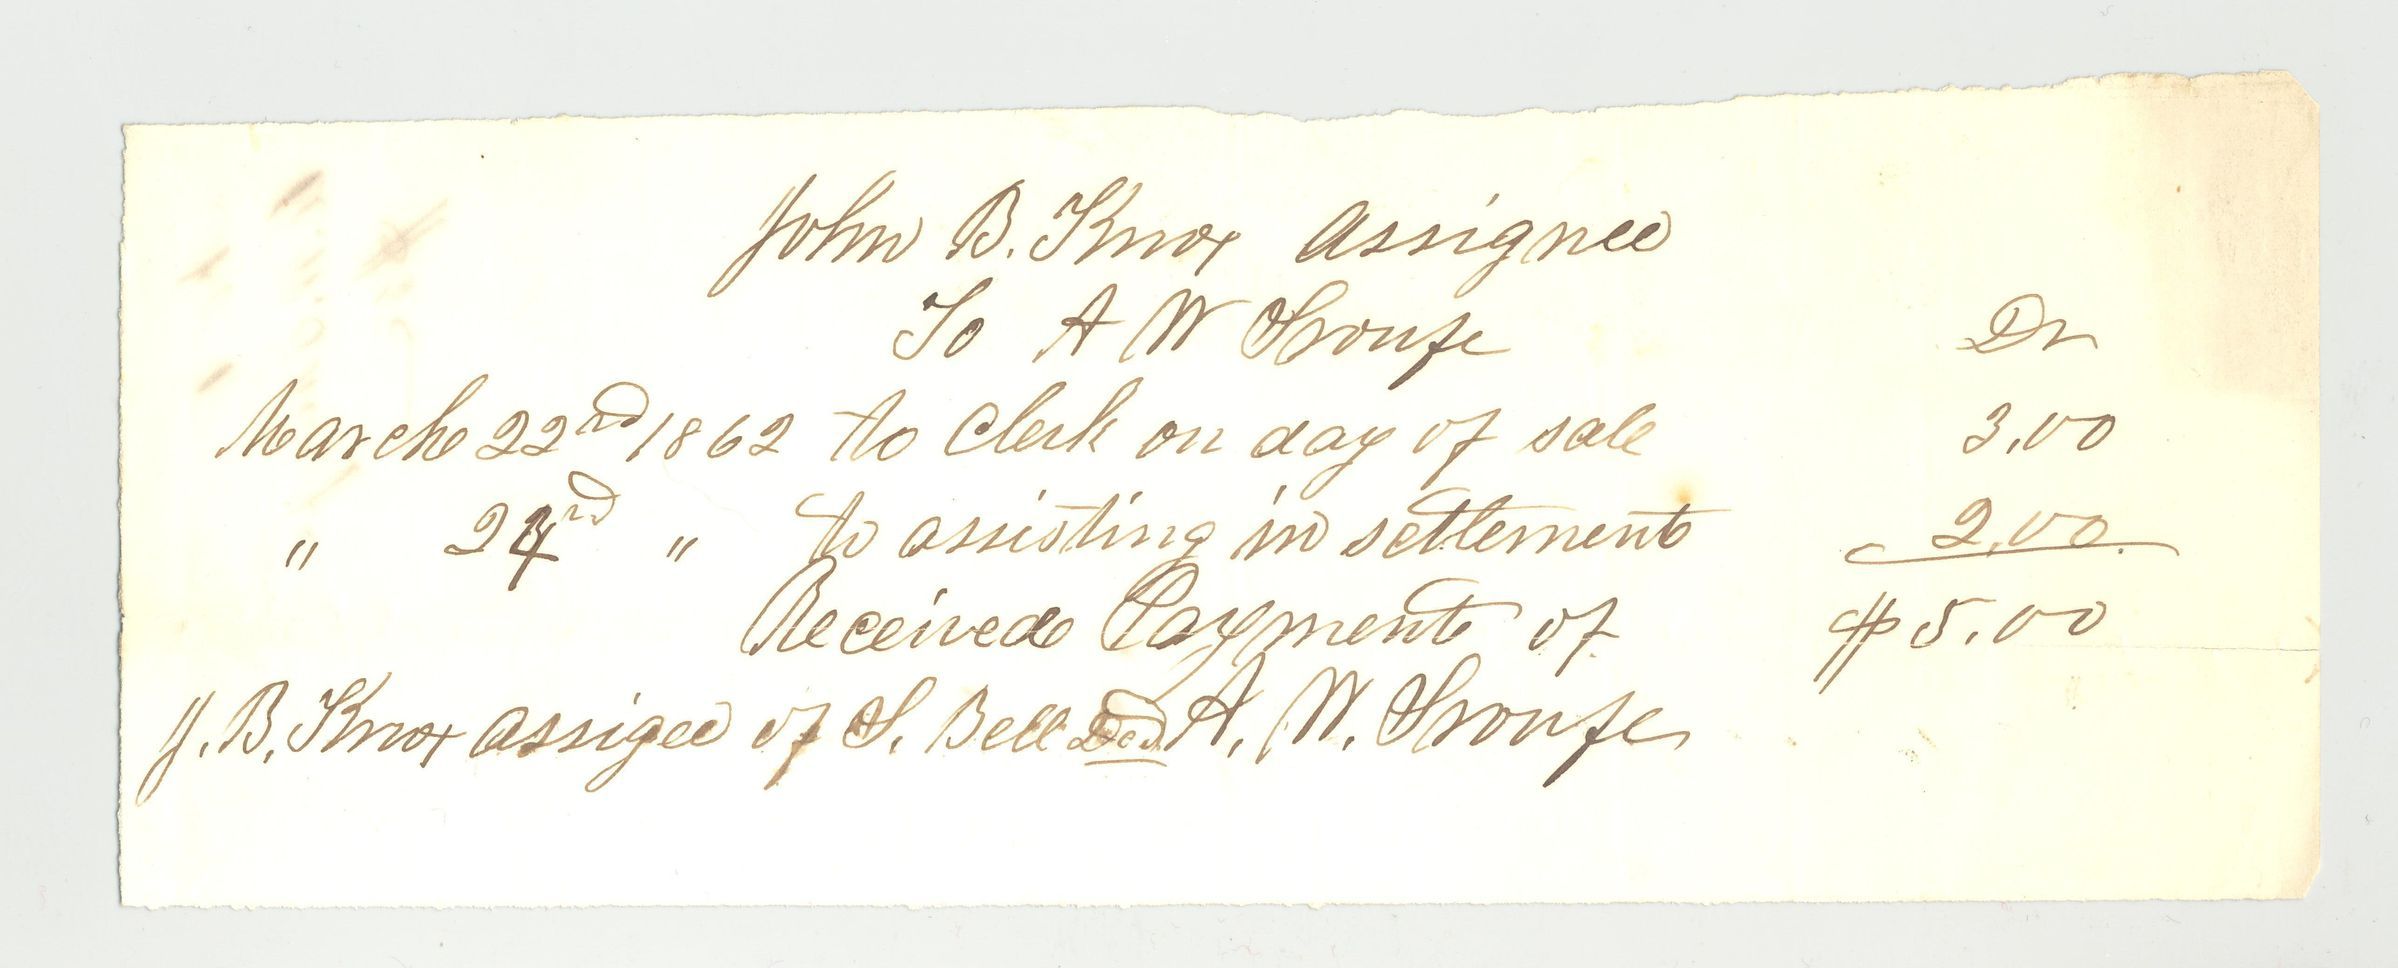 John B. Knox assignee
To A W Sroufe Dr
March 22nd 1862 to Clerk on day of sale 3.00
" 24rd " to assisting in settlement 2.00
Received Payment of $5.00
J. B. Knox assigee of S. Bell Dcd A. W. Sroufe